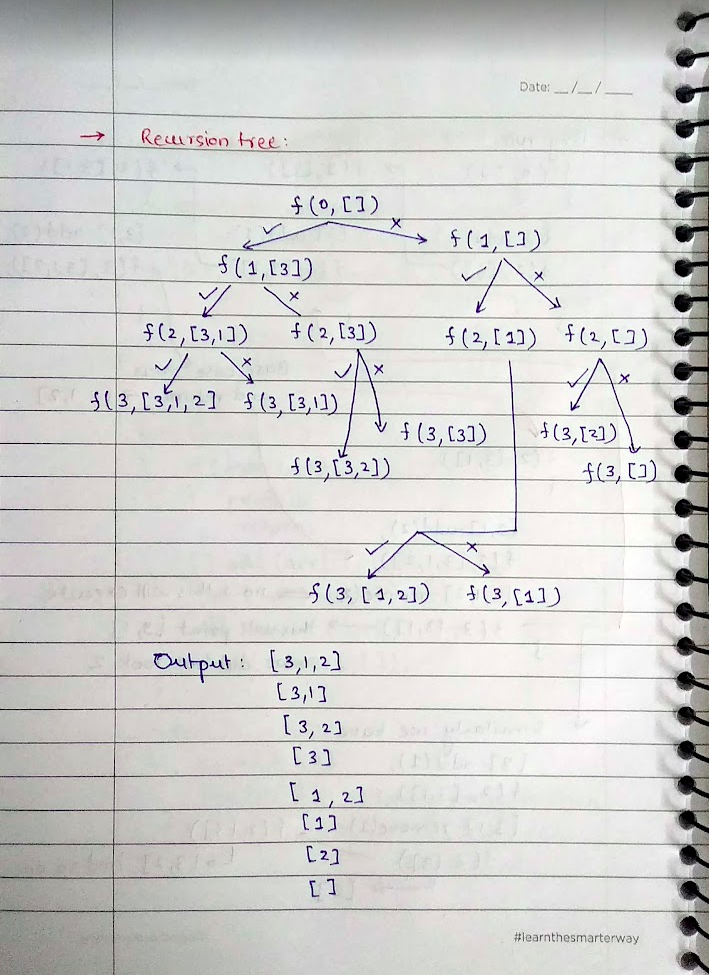 Date: __/__/___
→ Recursion tree:
f(0, [])
✓ ×
f(1, [])
f(1, [3])
✓ × ✓ ×
f(2, [3,1]) f(2, [3]) f(2, [1]) f(2, [])
✓ × ✓ × ✓ ×
f(3, [3,1,2] f(3, [3,1])
f(3, [3]) f(3, [2])
f(3, [3,2]) f(3, [])
✓ ×
f(3, [1,2]) f(3, [1])
Output: [3,1,2]
[3,1]
[3,2]
[3]
[1,2]
[1]
[2]
[]
#learnthesmarterway